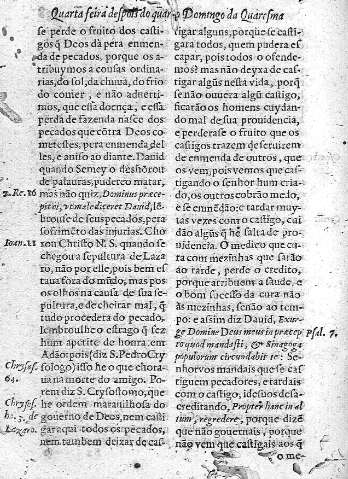 Quarta feira despois do quarto Domingo da Quaresma
se perde o fruito dos casti-
gos q̃ Deos dà pera enmen-
da de pecados, porque os a-
tribuymos a cousas ordina-
rias, do sol, da chuua, do frio
do comer, e não aduerti-
mos, que essa doença, e essa
perda de fazenda nasce dos
pecados que cõtra Deos co-
metestes, pera enmenda del
les, e aniso ao diante. Dauid
quando Semey o deshõrou
de palauras, pudera o matar,
mas não quiz, Dominus præce-
pit ei, vt malediceret Dauid, lẽ-
brouse de seus pecados, pera
sofrimẽto das injurias. Cho
rou Christo N. S. quando se
chegou a sepultura de Laza
ro, não por elle, pois bem es
taua fora do mũdo, mas pos
os olhos na causa de sua se-
pultura, e de cheirar mal, q̃
tudo procedera do pecado.
lembroulhe o estrago q̃ fez
hum apetite de honra: em
Adão: pois (diz S. Pedro Cry
sologo) isso he o que chora-
ua na morte do amigo. Po
rem diz S. Crysostomo, que
he ordem marauilhosa do
gouerno de Deos, nem casti
gar aqui todos os pecados,
nem tambem deixar de cas-
2. Re. 16
Ioan. 11
Chrysos.
64.
Chrysos.
ho. 3. de
Lazaro.
tigar alguns, porque se casti-
gara todos, quem pudera es
capar, pois todos o offende-
mos! mas não deyxa de cas-
tigar algũs nesta vida, porq̃
se não ouuera algũ castigo,
ficarão os homens cuydan-
do mal de sua prouidencia,
e perderase o fruito que os
castigos trazem de seruirem
de enmenda de outros, que
os vem, pois vemos que cas-
tigando o senhor hum cria-
do, os outros cobrão medo,
e se enmẽdão: e tardar muy-
tas vezes com o castigo, cai
dão algũs q̃ he falta de pro-
uidencia. O medico que ca
ra com mezinhas que sarão
ao tarde, perde o credito,
porque atribuem a saude, e
o bom successo da cura não
às mezinhas, senão ao tem-
po: e assim diz Dauid, Exur-
ge Domine Deus meus in præcep
to quod mandasti, & Synagoga
populorum circundabit te: Se-
nhor vos mandais que se cas
tiguem pecadores, e tardais
com o castigo, ides uos desa-
creditando, Propter hanc in al
tum, regredere, porque dizẽ
que não gouernais, porque
não vem que castigais aos q̃
o me-
Psal. 7.